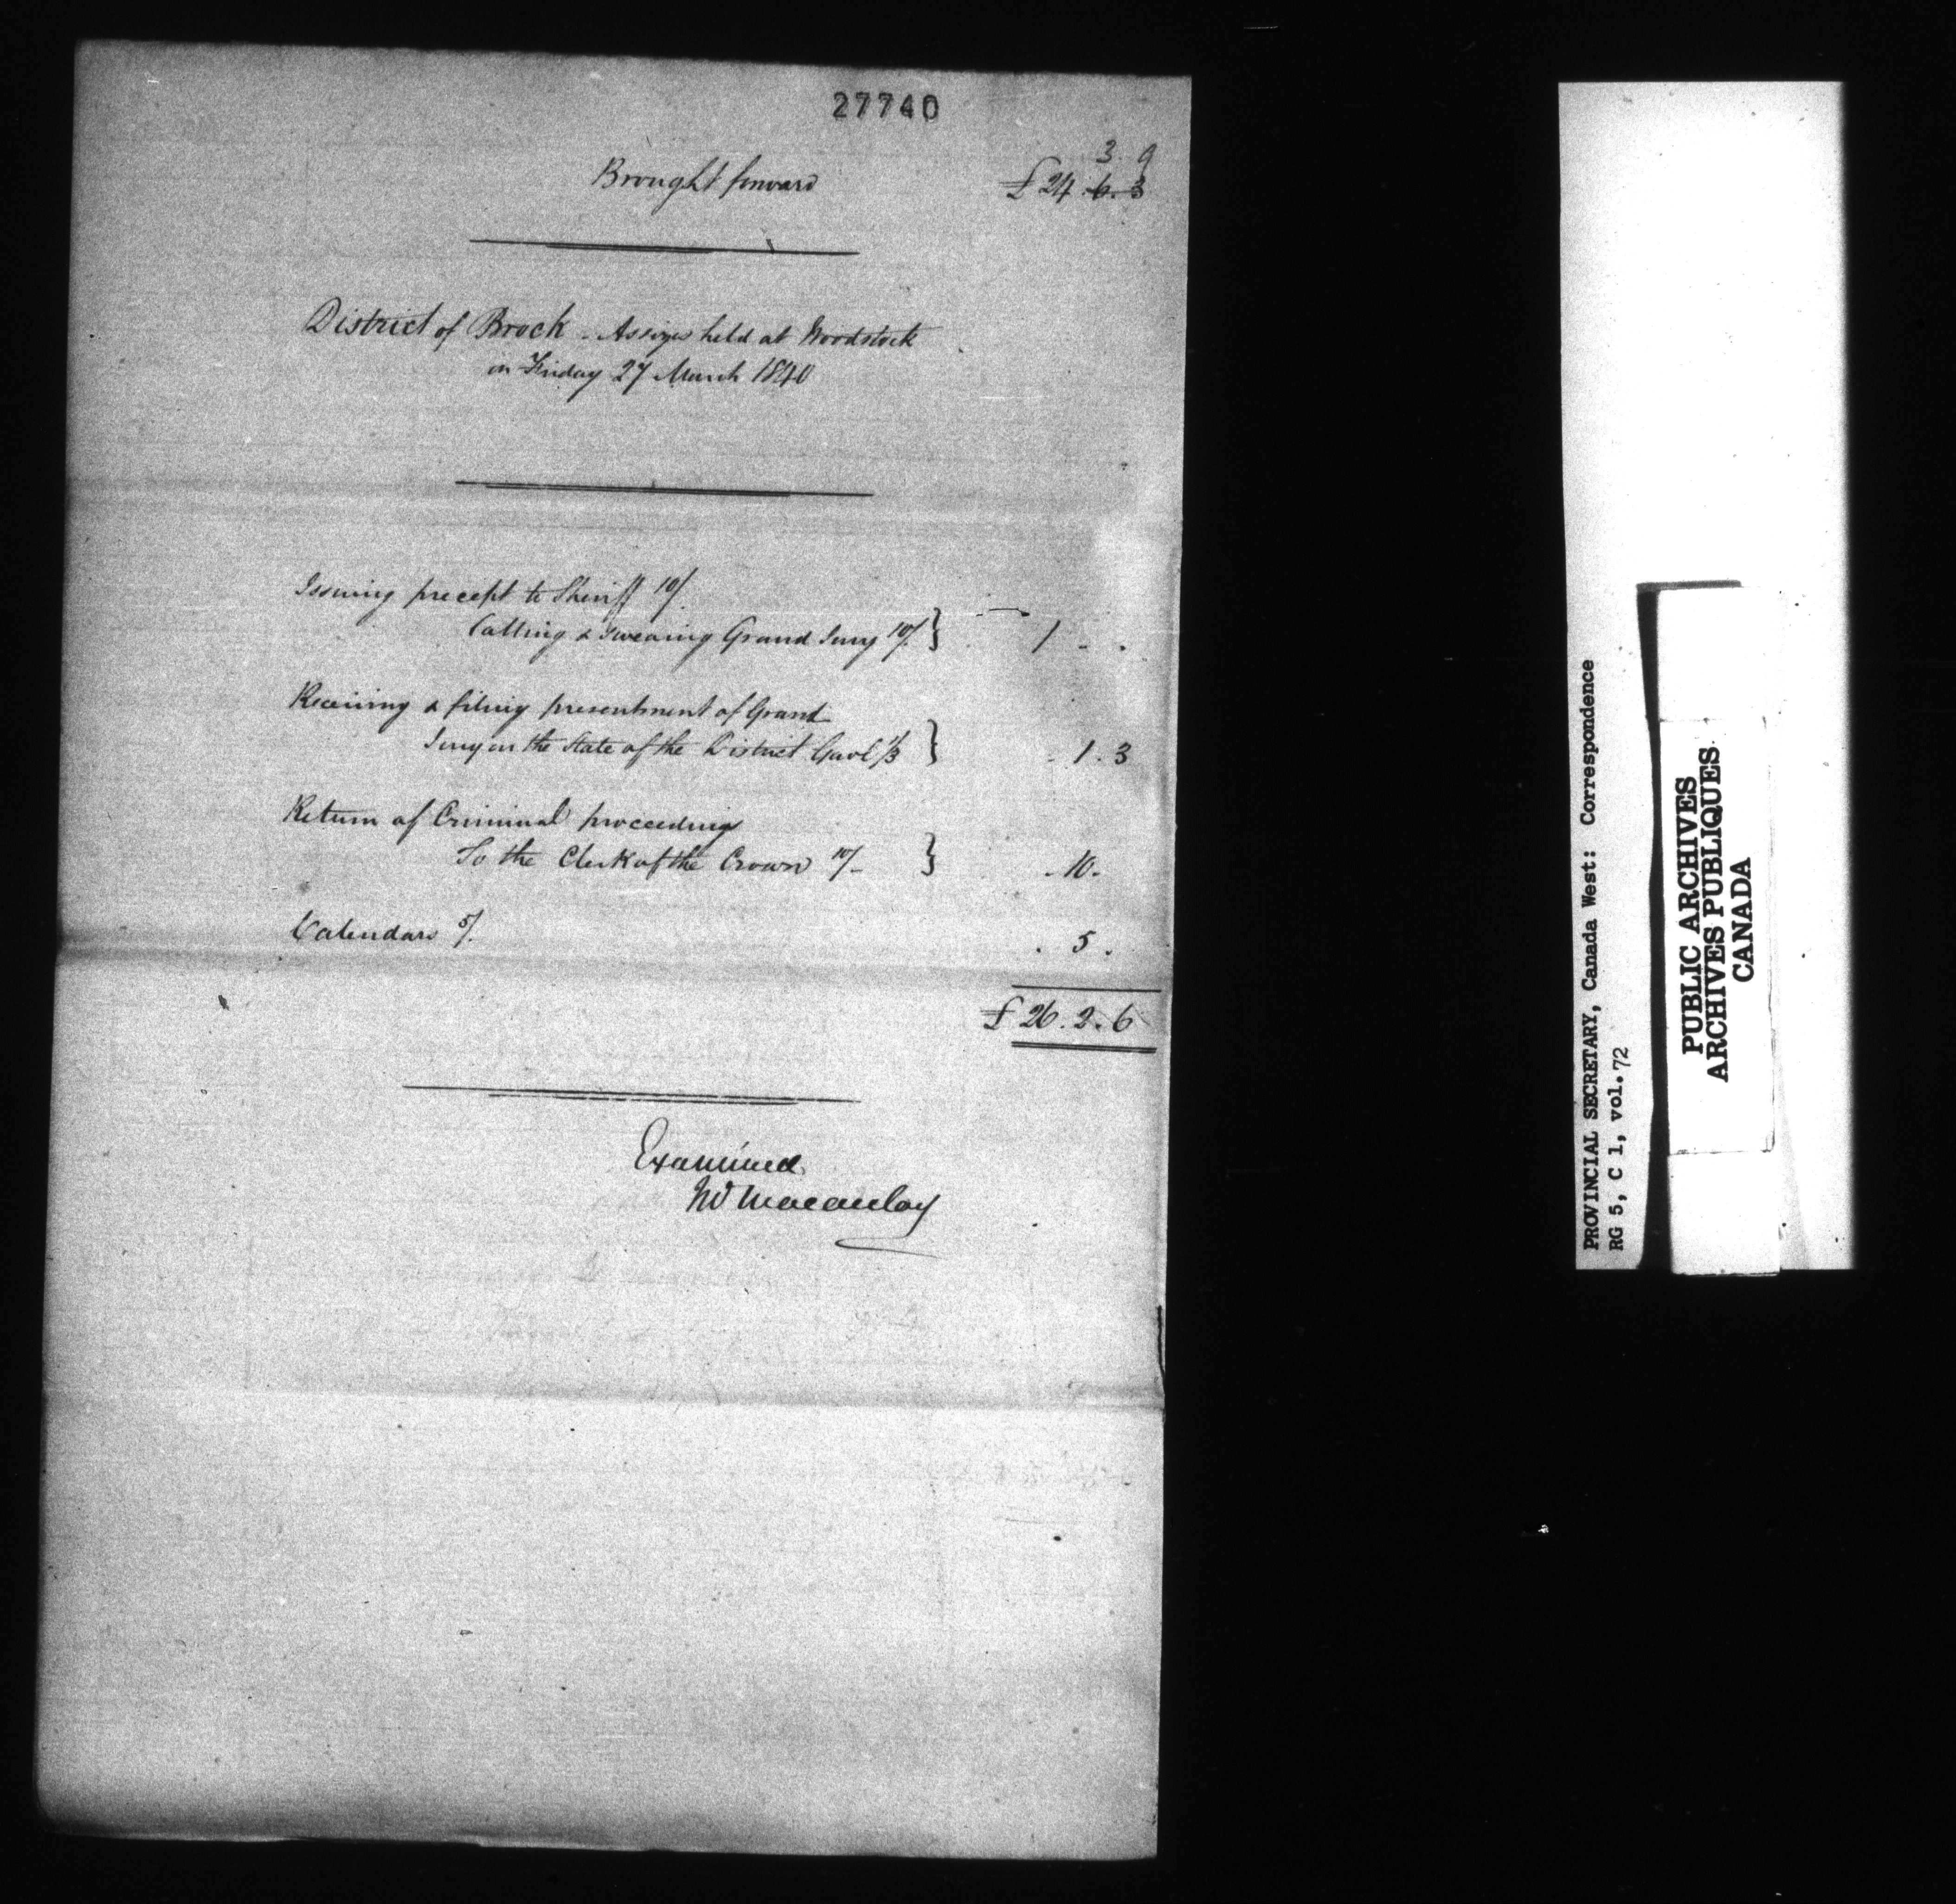 27740
3. 9
Brought forward £24.6.3
District of Brock - Assizes held at Woodstock
on Friday 27 March 1840
Issuing precept to Sheriff 10/.
Calling & swearing Grand Jury 10/. } 1 - .
Receiving & filing presentment of Grand
Jury on the State of the District Gaol 1/3 } - 1 . 3
Return of Criminal proceedings
To the Clerk of the Crown 10/- } - 10 -
Calendars 5/. . 5 .
£26.2.6
Examined
Macaulay
PROVINCIAL SECRETARY, Canada West: Correspondence
RG 5, C 1, vol. 72
PUBLIC ARCHIVES
ARCHIVES PUBLIQUES
CANADA